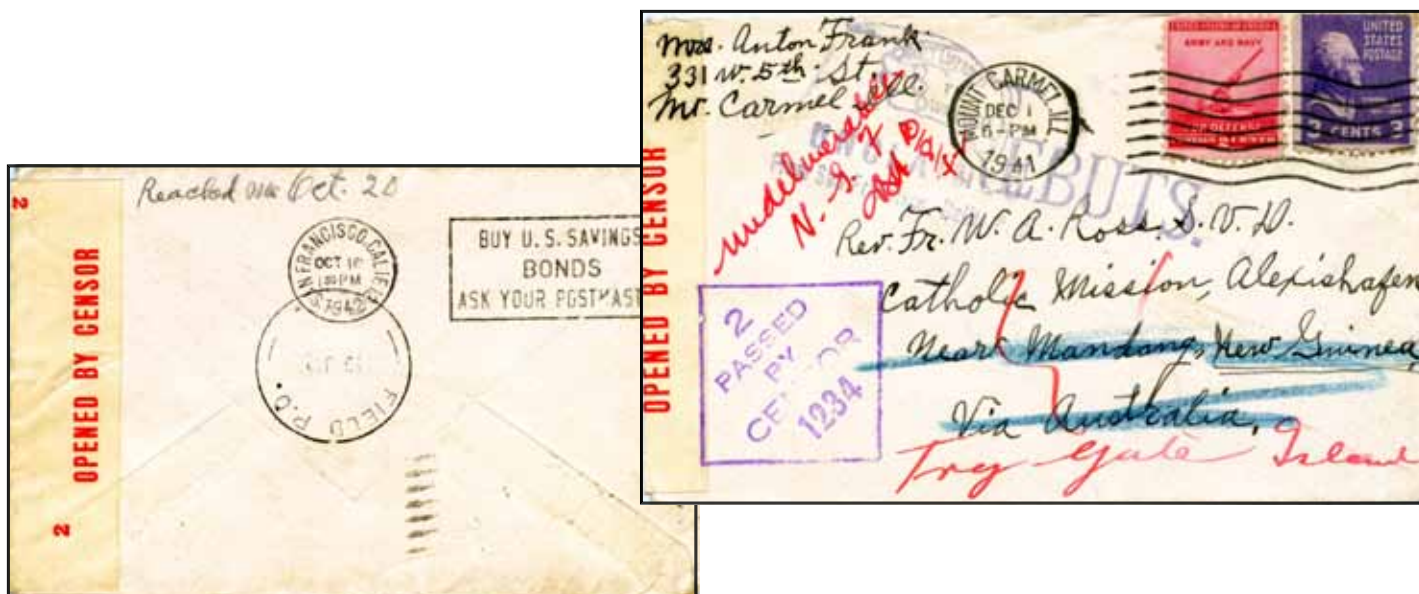 2
OPENED BY CENSOR
2
Reached me Oct. 20
SAN FRANCISCO, CALIF.
OCT 1
PM
1942
BUY U.S. SAVINGS
BONDS
ASK YOUR POSTMAST
FIELD P.O.
OPENED BY CENSOR
Mrs. Anton Frank
331 W. 5th St.
Mt. Carmel Ill.
MOUNT CARMEL, ILL.
DEC 1
6-PM
1941
UNITED STATES OF AMERICA
ARMY AND NAVY
FOR DEFENSE
UNITED
STATES
POSTAGE
3 CENTS 3
undeliverable
N. G. F
DEBUTS.
Rev. Fr. W. A. Ross. S. V. D.
Catholic Mission, Alexishafen
Near Mandang, New Guinea,
Via Australia,
Try Yule Island
2
PASSED
BY
CENSOR
1234